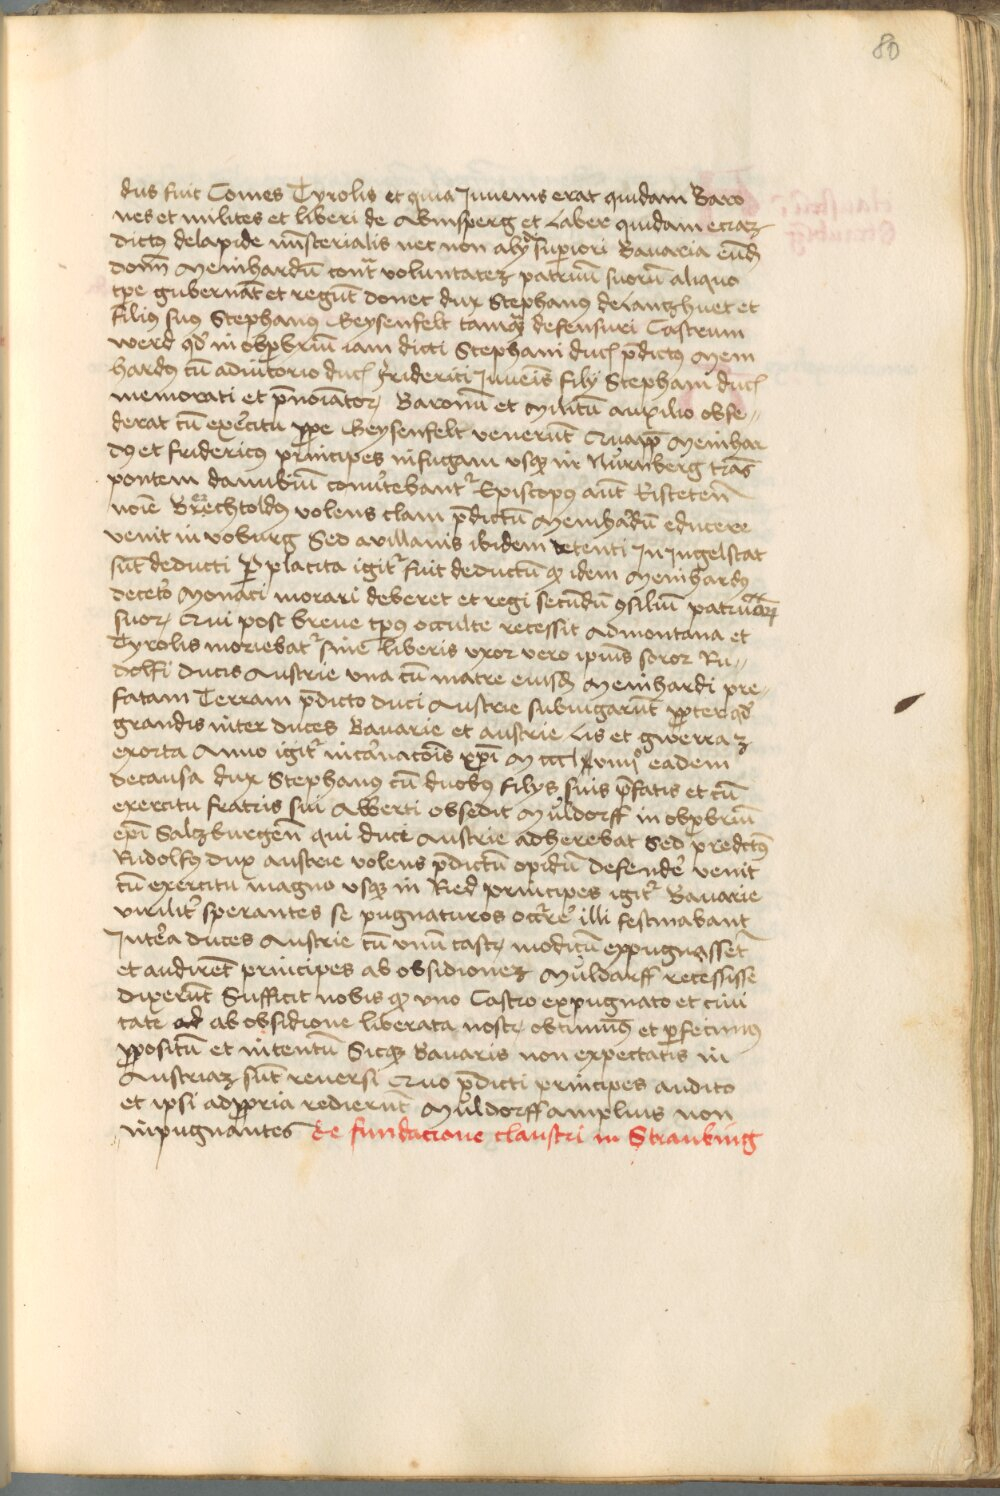 80
dus fuit Comes Tyrolis et quia Juvenis erat quidam Baro
nes et milites et liberi de Abensperg et Laber quidam eciaz
dictus delapide mīsterialis nec non alyꝫ superiori Bauaria eūdē
domī Meinhardū cont͛ voluntateꝫ patruū suorū aliquo
tp̄e gubernāt et regūt donec dux Stephanꝰ delantzhuet et
filiꝰ suꝰ Stephanꝰ Geysenfelt tamqꝫ defensurei Castrum
werd qd̄ in obpͦbriū iam dicti Stephani duc̄ p̄dictꝰ Mein
hardꝰ cū adiutorio duc̄ friderici Juuēis fily Stephani duc̄
memorati et p̄noīatorꝝ Baronū et Militū auxilio obse„
derat cū exercitu ꝓpe Geysenfelt venerūt Quapp̄ Meinhar
dꝰ et fridericꝰ principes infugam vsqꝫ in Nurnberg trās
pontem danubiū conūtebant᷑ Episcopꝰ aūt Eisteteñ
noīe Brechtoldꝰ volens clam p̄dictū Meinhardū educere
venit in voburg Sed avillanis ibidem detenti In Ingelstat
sūt deducti Per placita igit᷑ fuit deductū qꝫ idem Meinhardꝰ
deceto Monaci morari deberet et regi secundū ꝯsiliū patruorꝝ
suorꝝ Qui post breue tp̄ꝰ occulte recessit Admontana et
Tyrolis moriebat᷑ sine liberis vxor vero ipiꝰ soror Ru„
dolfi ducis Austrie vna cū matre eiusdē Meinhardi pre„
fatam Terram p̄dicto duci Austrie subiugarūt ꝓpter qd̄
grandis inter duces Bauarie et austrie Lis et gwerraꝫ
exorta Anno igit᷑ incarnacōis xp̄i eadem
decausa dux Stephanꝰ cū duobꝰ filys suis p̄fatis et cū
exercitu fratris sui Alberti obsedit Muldorff in obpͦbriū
ep̄i Saltzburgeñ qui duce Austrie adherebat Sed predictꝰ
Rudolfꝰ dux austrie volens p̄dictū opidū defendere venit
cū exercitu magno vsqꝫ in Ried principes igit᷑ Bauarie
virilit᷑ sperantes se pugnaturos occ᷑re illi festinabant
Interea duces Austrie cū vnū castrꝝ modicū expugnasset
et audirēt principes ab obsidioneꝫ Muldarff recessisse
dixerūt Sufficit nobis qꝫ vno Castro expugnato et ciui
tate ad ab obsidione liberata nostrꝝ obtinuimꝰ et perfecimus
ꝓpositū et intentū Sicqꝫ Bauaris non expectatis in
Austriaꝫ sūt reuersi Quo p̄dicti principes audito
et ipsi adꝓpria redierūt Muldorff amplius non
inpugnantes de fundacione claustri in Straubing